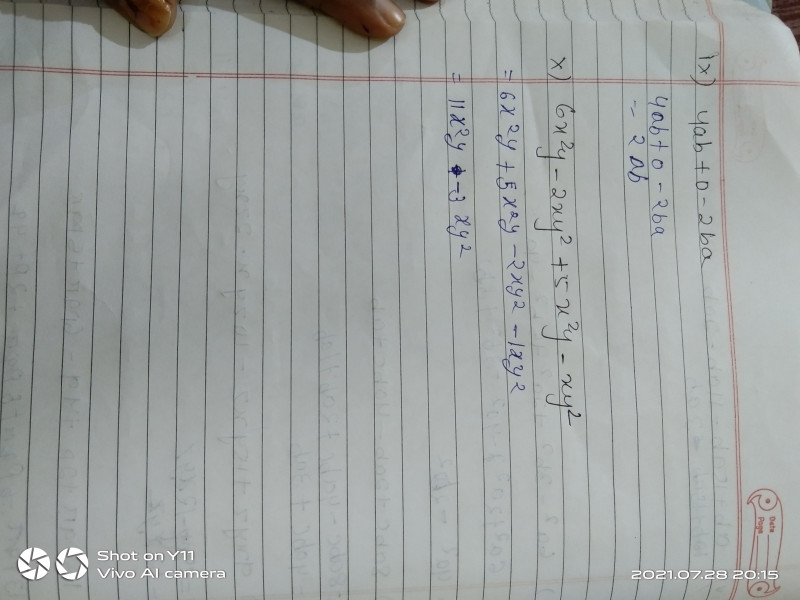 Date
Page
ix) 4ab+0-2ba
4ab+0-2ba
= 2ab
x) 6x²y - 2xy² + 5x²y - xy²
= 6x²y + 5x²y - 2xy² - 1xy²
= 11x²y - 3xy²
Shot on Y11
Vivo AI camera
2021.07.28 20:15